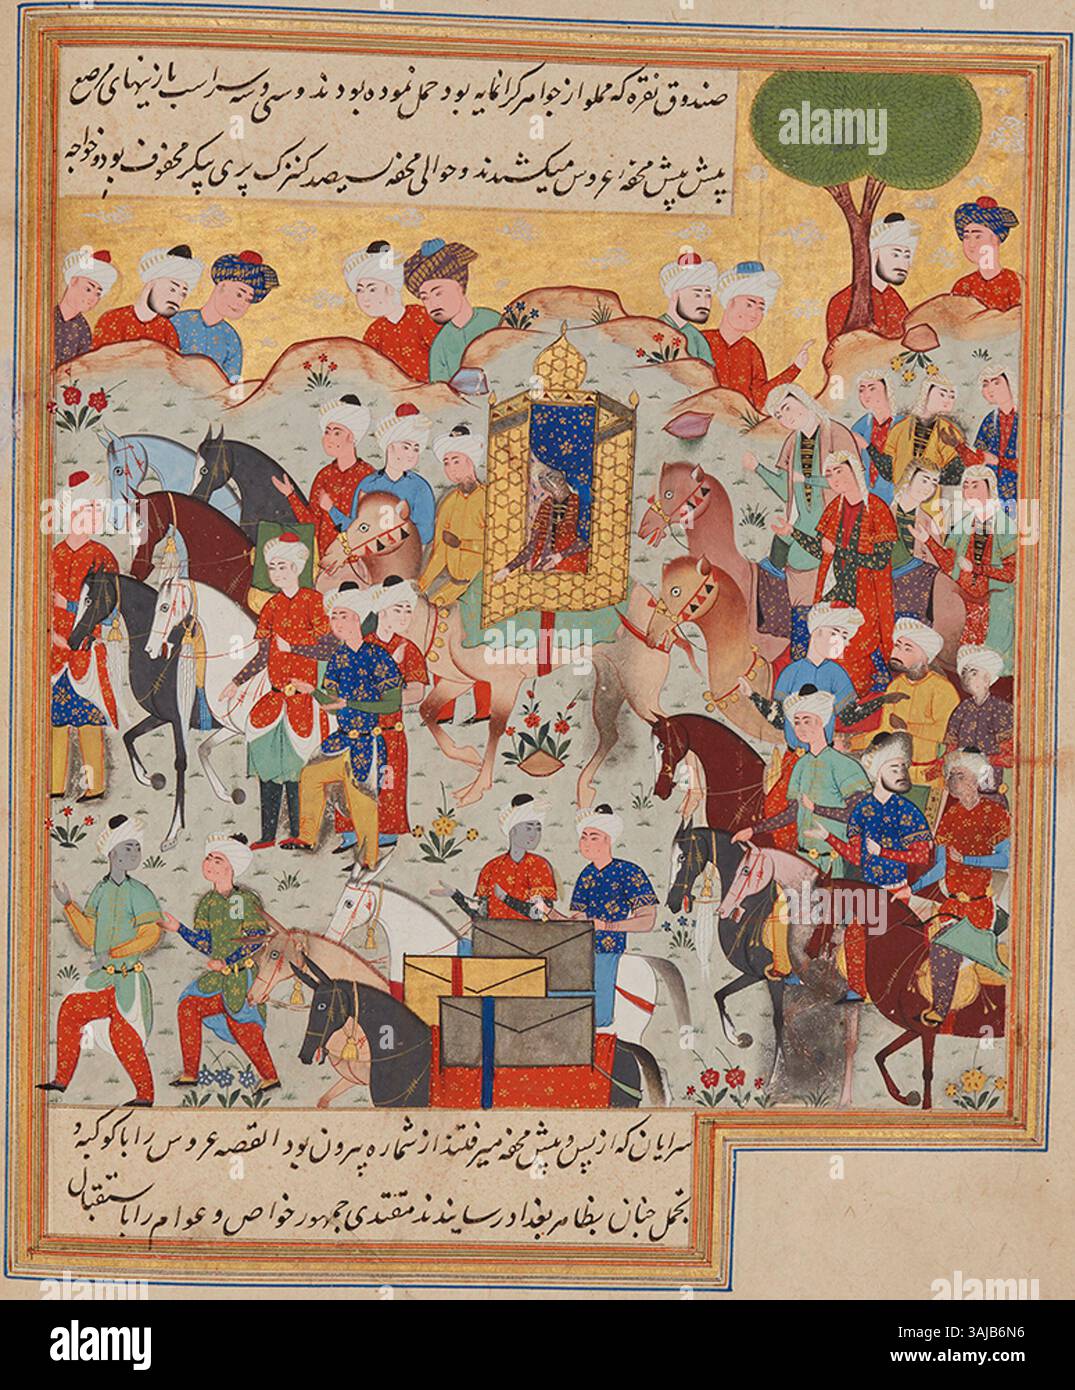 صندوق نقره که مملو از جواهر کرانمایه بود حمل نموده بودند و سی و سه سر اسب با زینهای مرصع
پیش پیش محفه عروس میکشیدند و حوالی محفه سیصد کنیزک پری پیکر محفوف بود و خواجه
سرایان که از پس و پیش محفه میرفتند از شماره بیرون بود القصه عروس را با کوکبه و
تجمل چنان بظاهر بغداد رسانیدند مقتدی جمهور خواص و عوام را با ستقبال
alamy
alamy
Image ID: 3AJB6N6
www.alamy.com